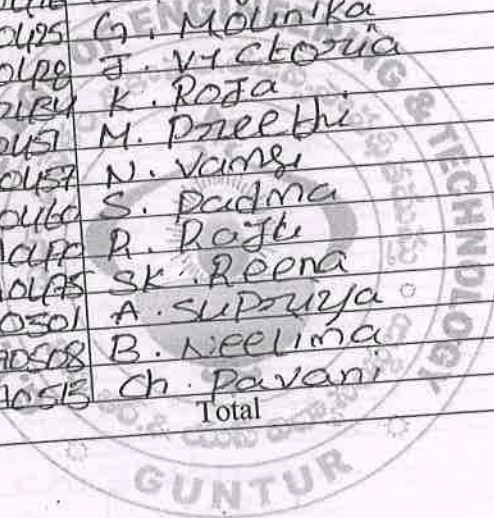 0425 G. Mounika
J. Victoria
K. Roja
0451 M. Preethi
0457 N. Vamsi
0460 S. Padma
R. Raju
0475 SK. Reena
0501 A. Supriya
0508 B. Neelima
0515 Ch. Pavani
Total
OF ENGINEERING & TECHNOLOGY
GUNTUR